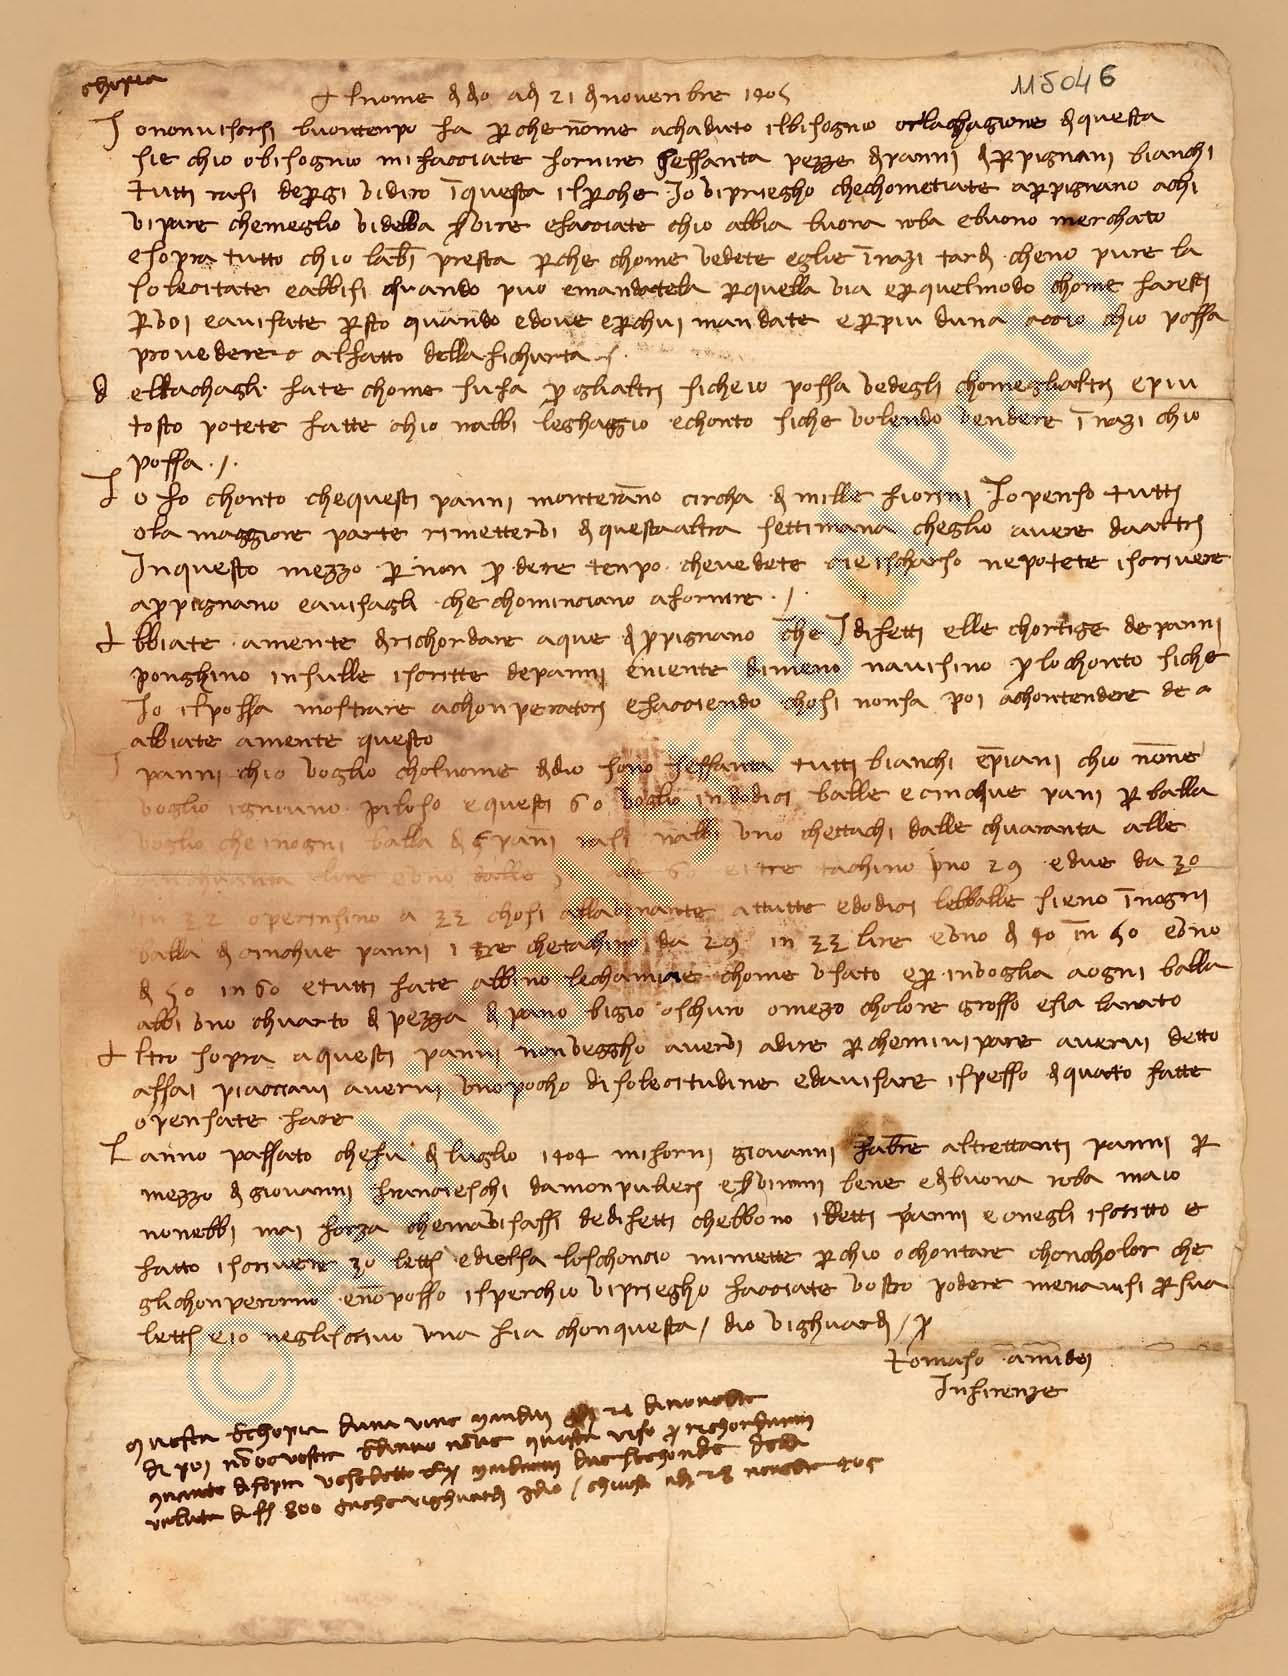 chopia
115046
+ Al nome di dio adi 21 di novenbre 1405
Io non vi scrisi buon tenpo fa perche non me achaduto il bisogno or la chagione di questa
sie chio o bisogno mi facciate fornire sessanta pezze di panni di perpignani bianchi
tutti rasi de pregi vi diro in questa il perche Io vi priegho che chometiate a perpignano a chi
vi pare che meglio vi debba servire e facciate chio abbia buona roba e buono merchato
e sopra tutto chio labbi presta perche chome vedete eglie inazi tardi che no pure la
solecitate e abbisi quando puo e mandatela per quella via e per quel modo chome faresti
per voi e avisate presto quando e dove e per chui mandate e per piu duna accio chio possa
provedere al fatto della sichurta
di
 fate chome si fa per gli altri siche io possa vedegli chome gli altri e piu
tosto potete fatte chio nabbi leghaggio e chonto siche volendo vendere inazi chio
possa
Io fo chonto che questi panni monteranno circha di mille fiorini Io penso tutti
o la maggiore parte rimettervi di questa altra settimana che glio avere da altri
In questo mezzo per non perdere tenpo che vedete cie ischarso ne potete iscrivere
a perpignano e avisagli che chominciano a fornire
Abbiate a mente di richordare a que di perpignano che I difetti elle chortige de panni
ponghino in sulle iscritte de panni e niente di meno navisino per lo chonto siche
Io il possa mostrare a chonperatori e facciendo chosi non sa poi a chontendere de
abbiate a mente questo
I panni chio voglio chol nome di dio sono sessanta tutti bianchi e piani chio non ne
voglio igniuno piloso e questi 60 voglio in dodici balle e cinque pani per balla
voglio che in ogni balla di 5 pani rasi nabbi uno chettachi dalle chuaranta alle
cinquanta lire e uno dalle 50 alle 60 e i tre tachino uno 29 e due da 30
in 32 o per insino a 33 chosi alla vinante a tutte e dodici le balle sieno in ogni
balla di cinchue panni i tre che tachino da 29 in 33 lire e uno di 40 in 50 e uno
di 50 in 60 e tutti fate abbino le chamicie chome usato e per invoglia a ogni balla
abbi uno chuarto di pezza di pano bigio oschuro o mezo cholore grosso e sia lanato
Altro sopra a questi panni non veggho avervi a dire perche mi vi pare avervi detto
assai piacciavi avervi uno pocho di solecitudine e davisare ispesso di quato fatte
o pensate fare
L anno passato che fu di luglio 1404 mi forni giovanni fabre altrettanti panni per
mezzo di giovanni franceschi da monpulieri e servimi bene e di buona roba ma io
non ebbi mai forza che mavisassi de difetti chebbono i detti panni e onegli iscritto e
fatto iscrivere 30 lettere e di essa loschoncio mi mette perchio o chontare chon cholor che
gli chonperorno e no posso il perchio vi priegho facciate vostro podere me navisi per sua
lettera e io negliscrivo una fia chon questa / dio vi ghuardi / per
Tomaso amidei
In firenze
questa e chopia duna vine mandai adi 21 di novenbre
di poi no o vostra e danno non e questa viso per richordarvi
quanto di sopra vesedetto mandavi due sechonde della
valuta di fiorini 800 anche vi ghuardi Idio / chiusa adi 28 novenbre 405